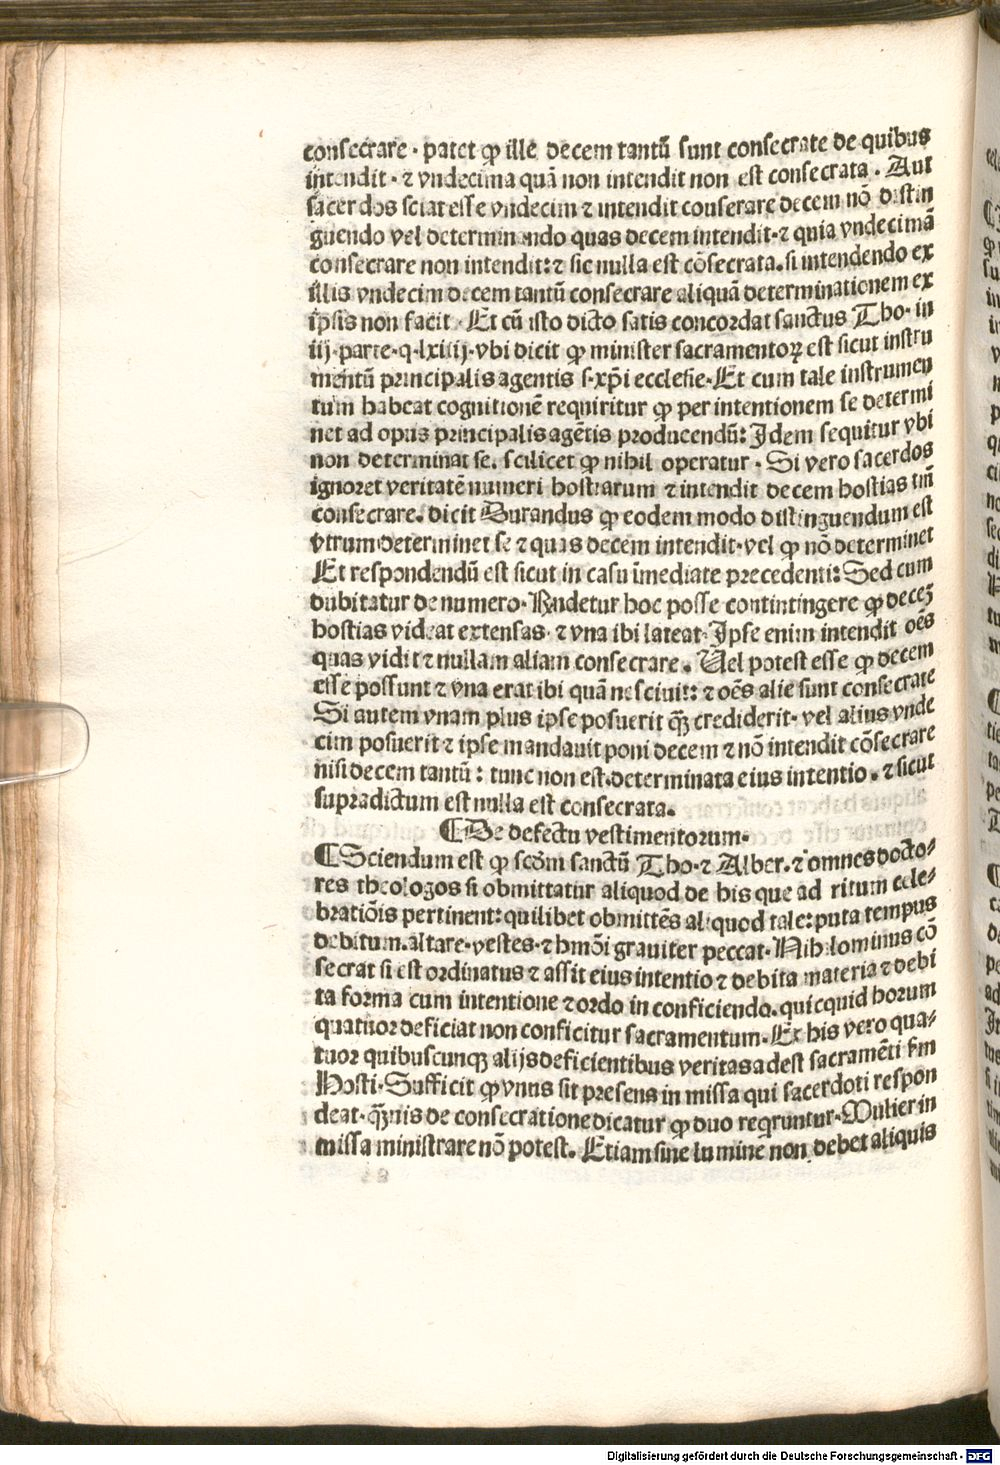 consecrare · patet ꝙ ille decem tantū sunt consecrate de quibus
intendit · ⁊ vndecima quā non intendit non est consecrata . Aut
sacerdos sciat esse vndecim ⁊ intendit conserare decem nō distin
guendo vel determinando quas decem intendit · ⁊ quia vndecimā
consecrare non intendit: ⁊ sic nulla est cōsecrata. si intendendo ex
illis vndecim decem tantū consecrare aliquā determinationem ex
ipsis non facit · Et cū isto dicto satis concordat sanctus Tho· in
iij · parte · q · lxiiij · vbi dicit ꝙ minister sacramentoꝝ est sicut instru
mentū principalis agentis s· xp̄i ecclesie · Et cum tale instrumen
tum habeat cognitionē requiritur ꝙ per intentionem se determi
net ad opus principalis agētis producendū: Idem sequitur vbi
non determinat se. scilicet ꝙ nihil operatur · Si vero sacerdos
ignoret veritatē numeri hostiarum ⁊ intendit decem hostias tm̄
consecrare. dicit Durandus ꝙ eodem modo distinguendum est
vtrum determinet se ⁊ quas decem intendit · vel ꝙ nō determinet
Et respondendū est sicut in casu īmediate precedenti: Sed cum
dubitatur de numero · Rn̄detur hoc posse contintingere ꝙ deceꝫ
hostias videat extensas · ⁊ vna ibi lateat · Ipse enim intendit oēs
quas vidit ⁊ nullam aliam consecrare . Uel potest esse ꝙ decem
esse possunt ⁊ vna erat ibi quā nesciuit: ⁊ oēs alie sunt consecrate
Si autem vnam plus ipse posuerit qꝫ̄ crediderit · vel alius vnde
cim posuerit ⁊ ipse mandauit poni decem ⁊ nō intendit cōsecrare
nisi decem tantū : tunc non est determinata eius intentio . ⁊ sicut
supradictum est nulla est consecrata.
¶ De defectu vestimentorum ·
¶ Sciendum est ꝙ scd̄m sanctū Tho· ⁊ Alber. ⁊ omnes docto⸗
res theologos si obmittatur aliquod de his que ad ritum cele⸗
brationis pertinent: quilibet obmittēs aliquod tale: puta tempus
debitum. altare · vestes · ⁊ hmōi grauiter peccat · Nihilominus cō
secrat si est ordinatus ⁊ assit eius intentio ⁊ debita materia ⁊ debi
ta forma cum intentione ⁊ ordo in conficiendo. quicquid horum
quattuor deficiat non conficitur sacramentum · Ex his vero qua⸗
tuor quibuscunqꝫ alijs deficientibus veritas adest sacramēti ẜm
Hosti · Sufficit ꝙ vnus sit presens in missa qui sacerdoti respon
deat · qꝫ̄uis de consecratione dicatur ꝙ duo reqruntur · Mulier in
missa ministrare nō potest. Etiam sine lumine non debet aliquis
Digitalisierung gefördert durch die Deutsche Forschungsgemeinschaft - DFG